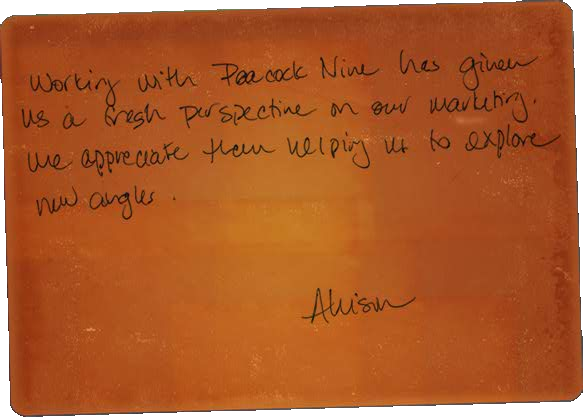 Working with Peacock Nine has given
us a fresh perspective on our marketing.
We appreciate them helping us to explore
new angles.
Allison